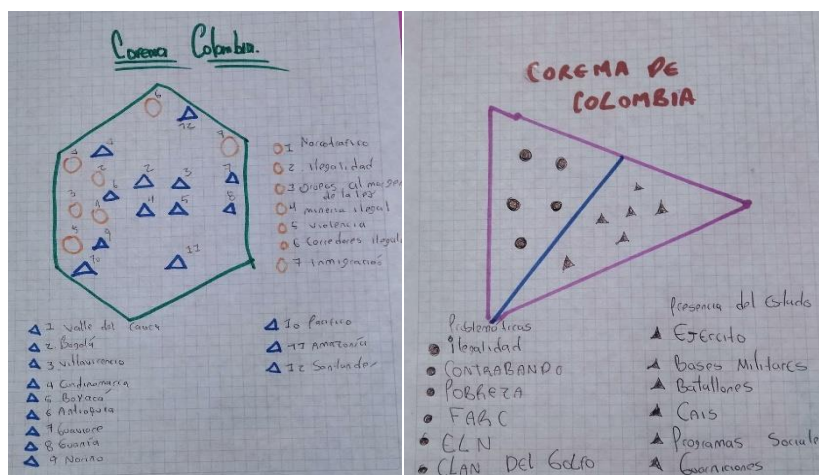 Corema Colombia.
6
12
7
1
1
2
6
2
3
7
3
4
4
5
8
5
9
10
11
1 Narcotrafico
2. Ilegalidad
3 Grupos al margen
de la ley
4 mineria ilegal
5 violencia
6 Corredores ilegal
7 Inmigración
1 Valle del Cauca
2 Bogotá
3 Villavicencio
4 Cundinamarca
5 Boyacá
6 Antioquia
7 Guaviare
8 Guanía
9 Narino
10 Pacifico
11 Amazonía
12 Santander
COREMA DE
COLOMBIA
Problemáticas
Ilegalidad
CONTRABANDO
POBREZA
FARC
ELN
CLAN DEL GOLFO
Presencia del Estado
EJErcito
Bases Militares
Batallones
CAIS
Programas Sociale
Guarniciones